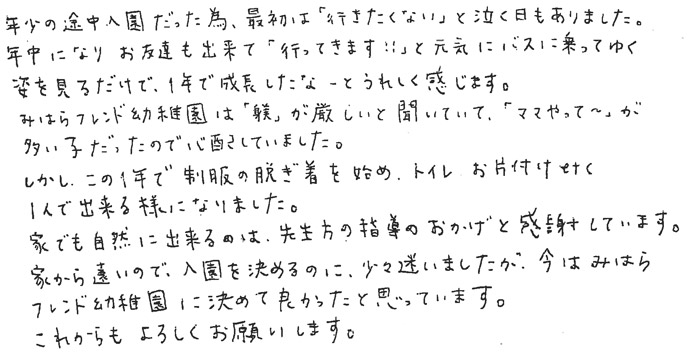 年少の途中入園だった為、最初は「行きたくない」と泣く日もありました。
年中になり お友達も出来て「行ってきます!!」と元気にバスに乗ってゆく
姿を見るだけで、1年で成長したなーとうれしく感じます。
みはらフレンド幼稚園は「躾」が厳しいと聞いていて、「ママやって〜」が
多い子だったので心配していました。
しかし、この1年で制服の脱ぎ着を始め、トイレ お片付け etc
1人で出来る様になりました。
家でも自然に出来るのは、先生方の指導のおかげと感謝しています。
家から遠いので、入園を決めるのに、少々迷いましたが、今はみはら
フレンド幼稚園に決めて良かったと思っています。
これからも よろしくお願いします。